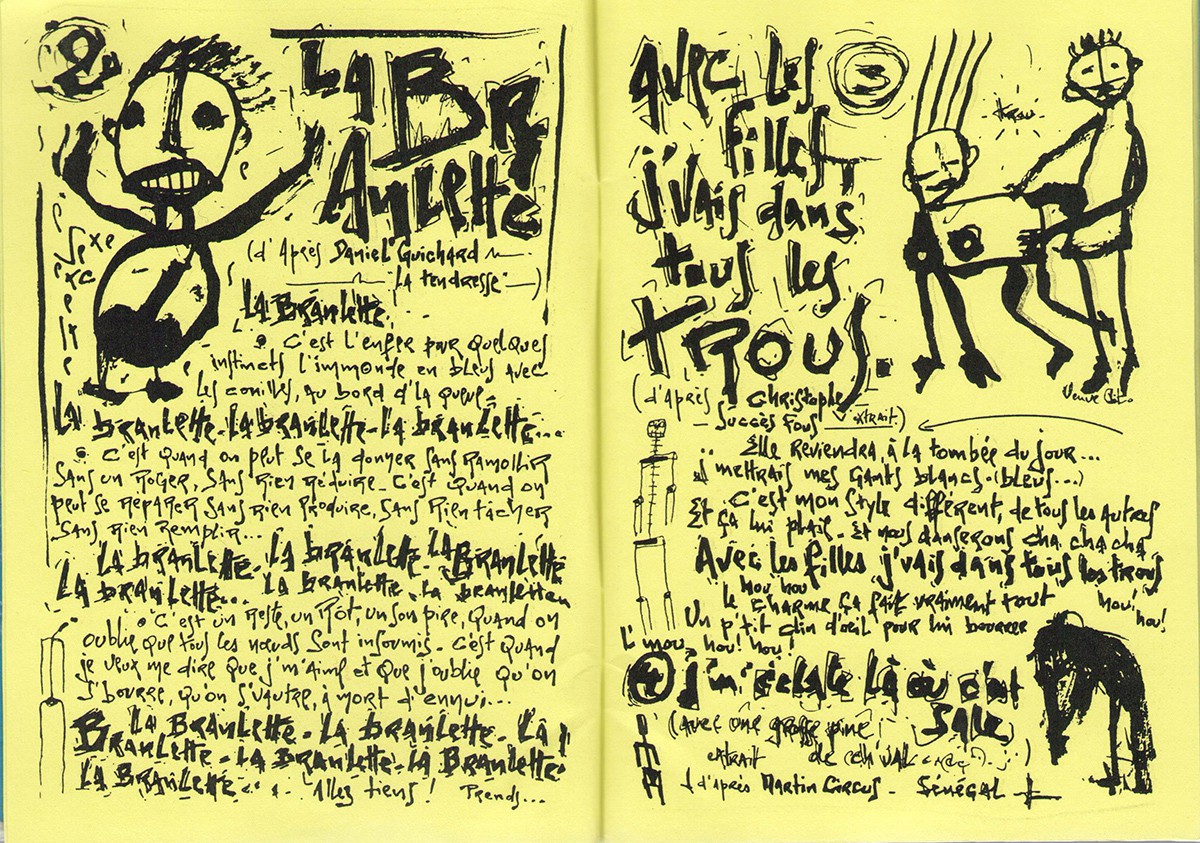 2
LA BR
ANLETTE
(d'Après Daniel Guichard
La tendresse)
La Branlette,
C'est l'enfer pour quelques
instincts l'immonde en bleus avec
les conilles, au bord d'la queue
La branlette. La branlette. La branlette...
C'est quand on peut se la donner sans ramollir
sans un Roger, sans rien réduire. C'est quand on
peut se réparer sans rien produire, sans rien tâcher
sans rien remplir...
La branlette. La branlette. La Branlette
La branlette... La branlette. La branlette
C'est un reste, un rôt, un son pire, quand on
oublie que tous les nœuds sont insoumis. C'est quand
je veux me dire que j'm'aime et que j'oublie qu'on
s'bourre, qu'on s'vautre, à mort d'ennui...
La Branlette. La branlette. La
Branlette. La branlette. La Branlette.
La Branlette... Allez tiens! Prends...
avec les
filles,
j'vais dans
tous les
TROUS.
3
trou
Veuve
(d'après Christophe
Succès Fous extrait)
Elle reviendra, à la tombée du jour...
j'mettrais mes gants blancs (bleus...)
C'est mon style différent, de tous les autres
Et ça lui plaît. Et nous danserons cha cha cha
Avec les filles j'vais dans tous les trous
hou hou
le charme ça fait vraiment tout hou!
hou!
Un p'tit clin d'œil pour lui bourrer
l'mou, hou! hou!
4 j'm'éclate là où c'est
SALE
(avec une grosse pine
extrait de ch'val
d'après Martin Circus - Sénégal